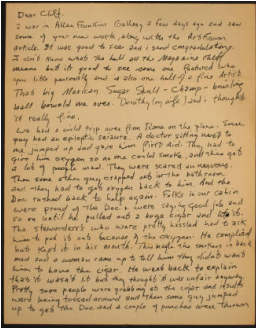 Dear Cliff.
I was in Allan Frumkins Gallery a few days ago and saw
some of your new work, along with the Art Forum
article. It was good to see and I send congratulations.
I don't know what the hell all the Magazine
means but its good to see some one featured who
you like personally and is also one hell of a fine Artist.
That big Mexican Sugar Skull - Champ - bowling
ball bowled me over. Dorothy (my wife) and I thought
it really fine.
We had a wild trip over from Rome on the plane. Some
guy had an epileptic seizure. A doctor sitting next to
me jumped up and gave him First Aid. They had to
give him oxygen so no one could smoke, and then got
a lot of people mad. They were scared and nervous.
Then some other guy crapped out in the bathroom
and they had to get oxygen back to him. And the
Doc rushed back to help again. Folks in our cabin
were proud of the Doc &
so on until he pulled out a huge cigar and lit it.
The stewardess who were pretty hassled had to ask
him to put it out because of the oxygen. He complied
but kept it in his mouth. This made the smokers in back
mad and a woman came up to tell him they didnt want
him to have the cigar. He went back to explain
that it wasn't lit but they thought it was unfair anyway.
Pretty soon people were at the cigar and insults
were being tossed around and then some guy jumped
up to get the Doc and a couple of punches were thrown